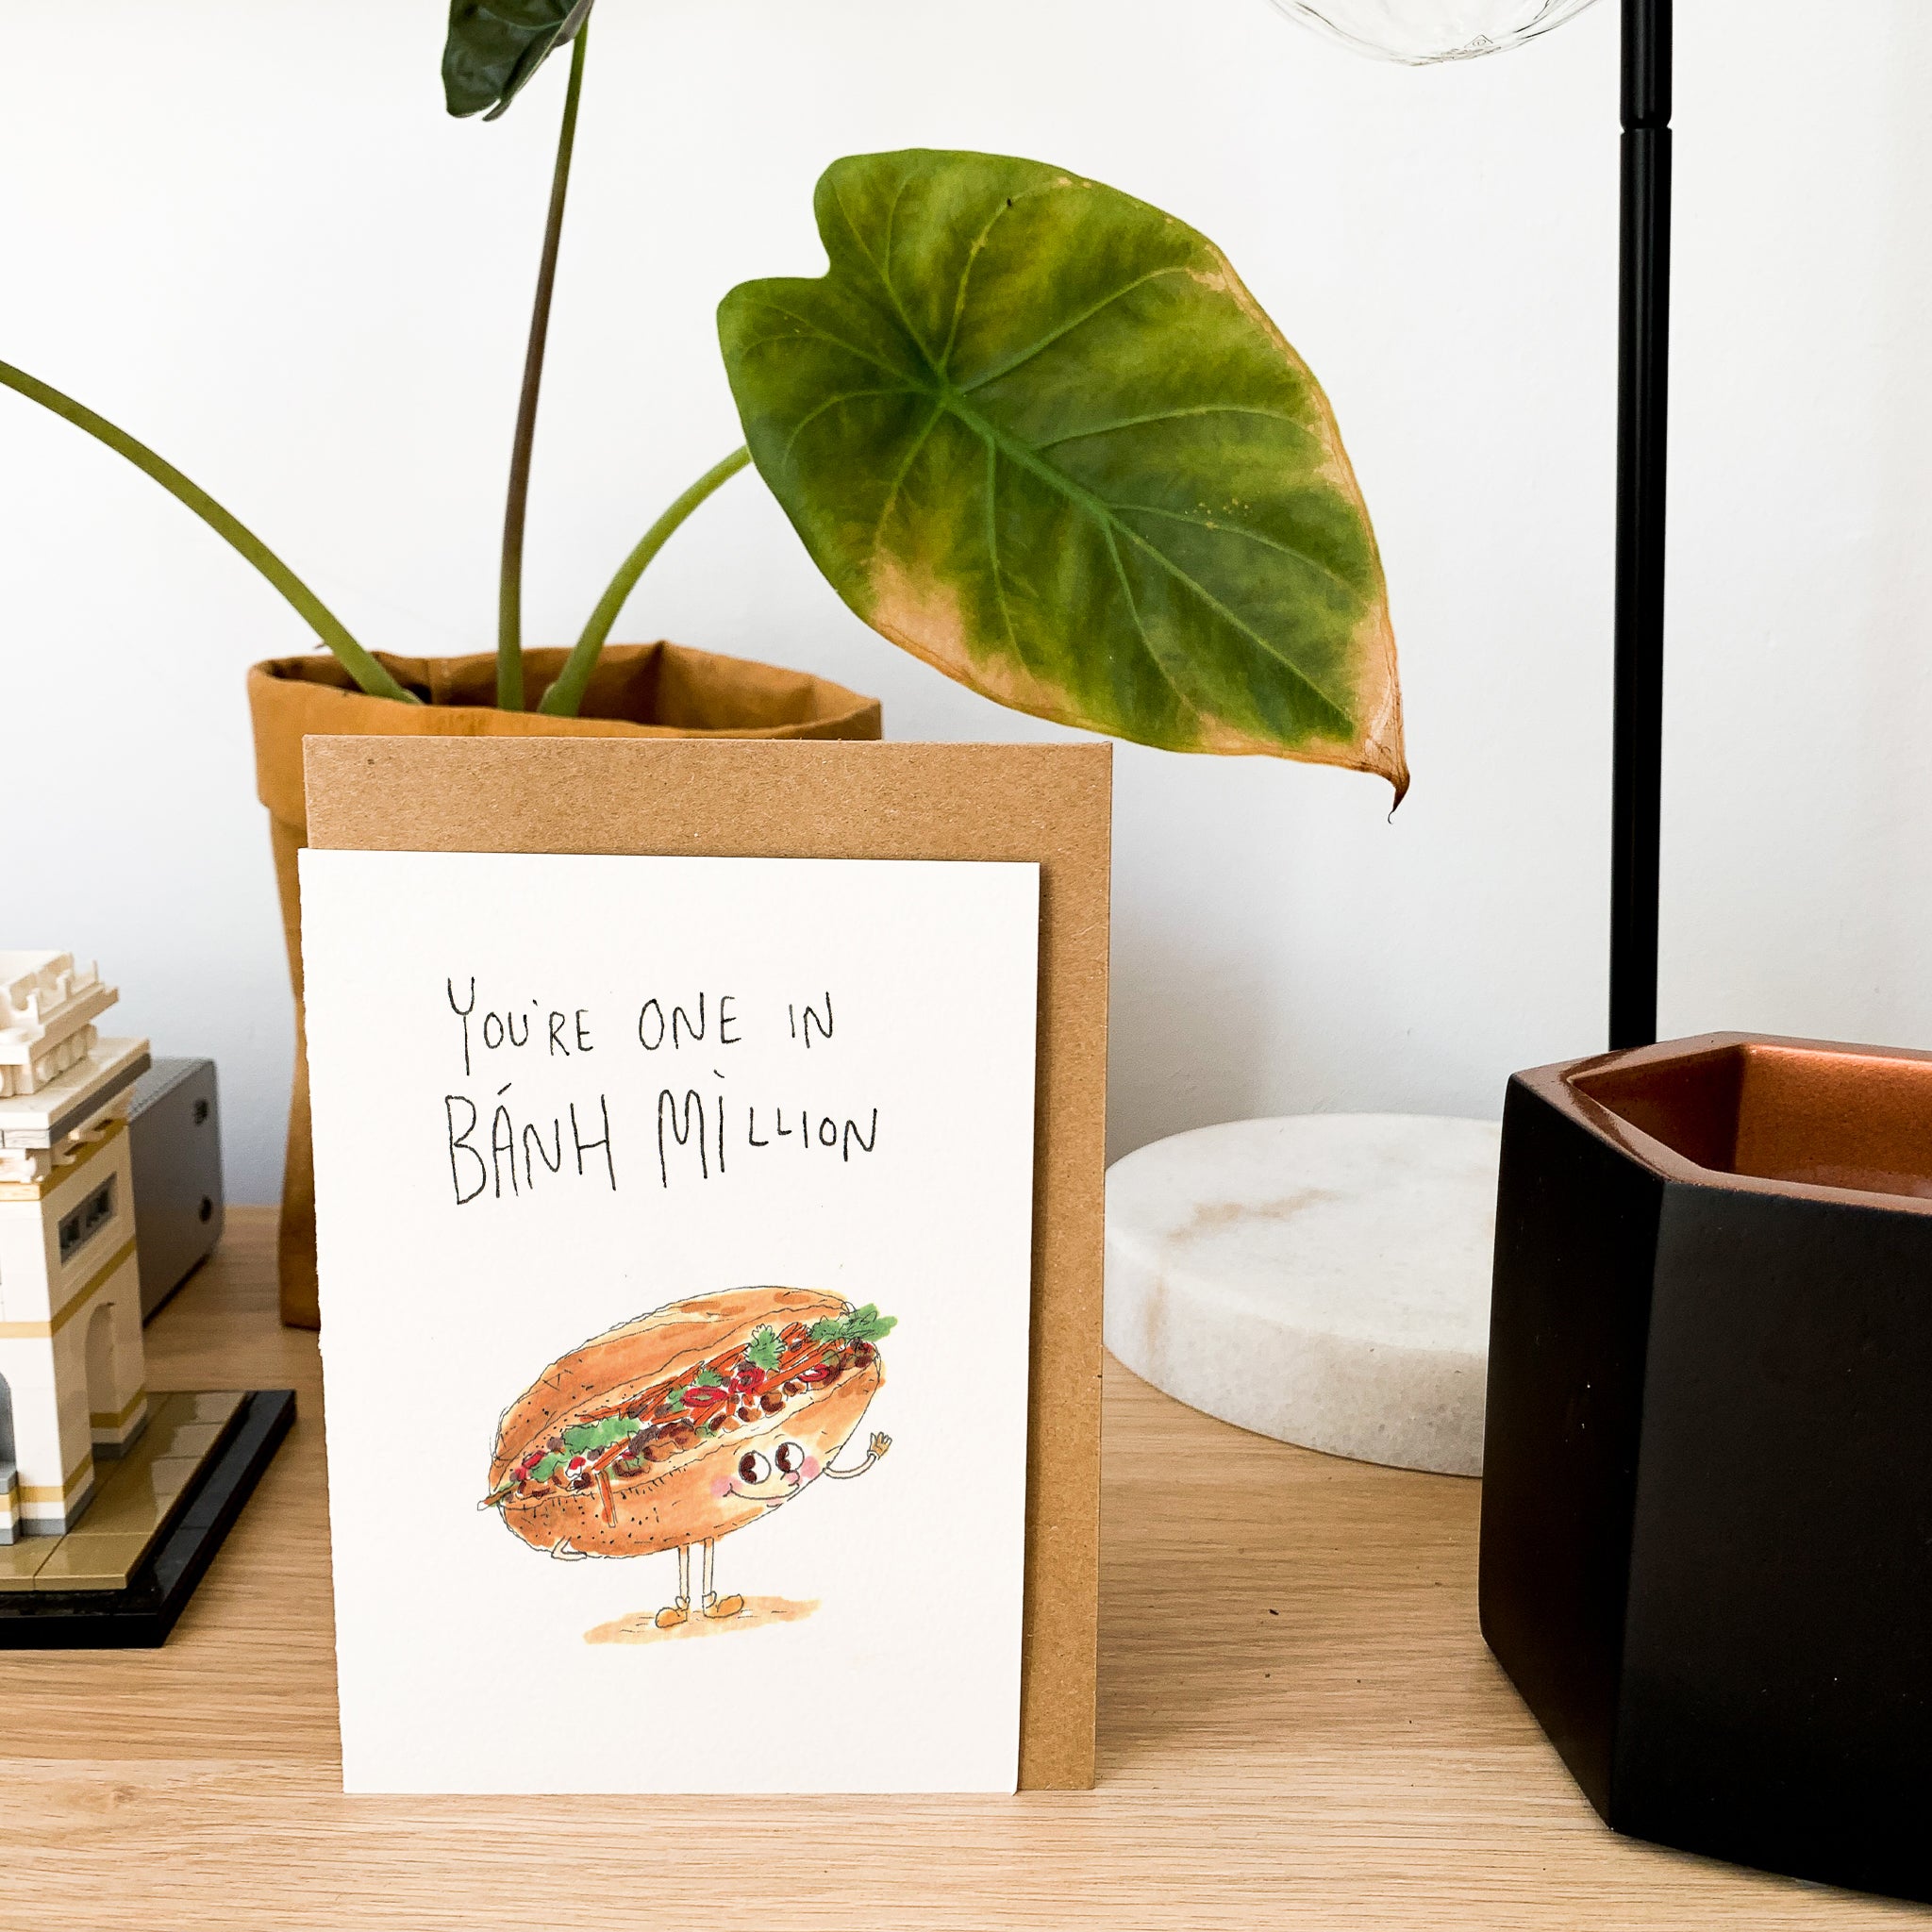 YOU'RE ONE IN
BÁNH MÌLLION